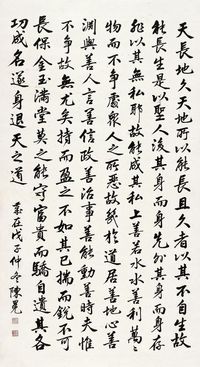 天長地久天地所以能長且久者以其不自生故
能長生是以聖人後其身而身先外其身而身存
非以其無私耶故能成其私上善若水水善利萬
物而不爭處衆人之所惡故幾於道居善地心善
淵與善人言善信政善治事善能動善時夫惟
不爭故無尤矣持而盈之不如其已揣而銳不可
長保金玉滿堂莫之能守富貴而驕自遺其咎
功成名遂身退天之道
戊子仲冬陳